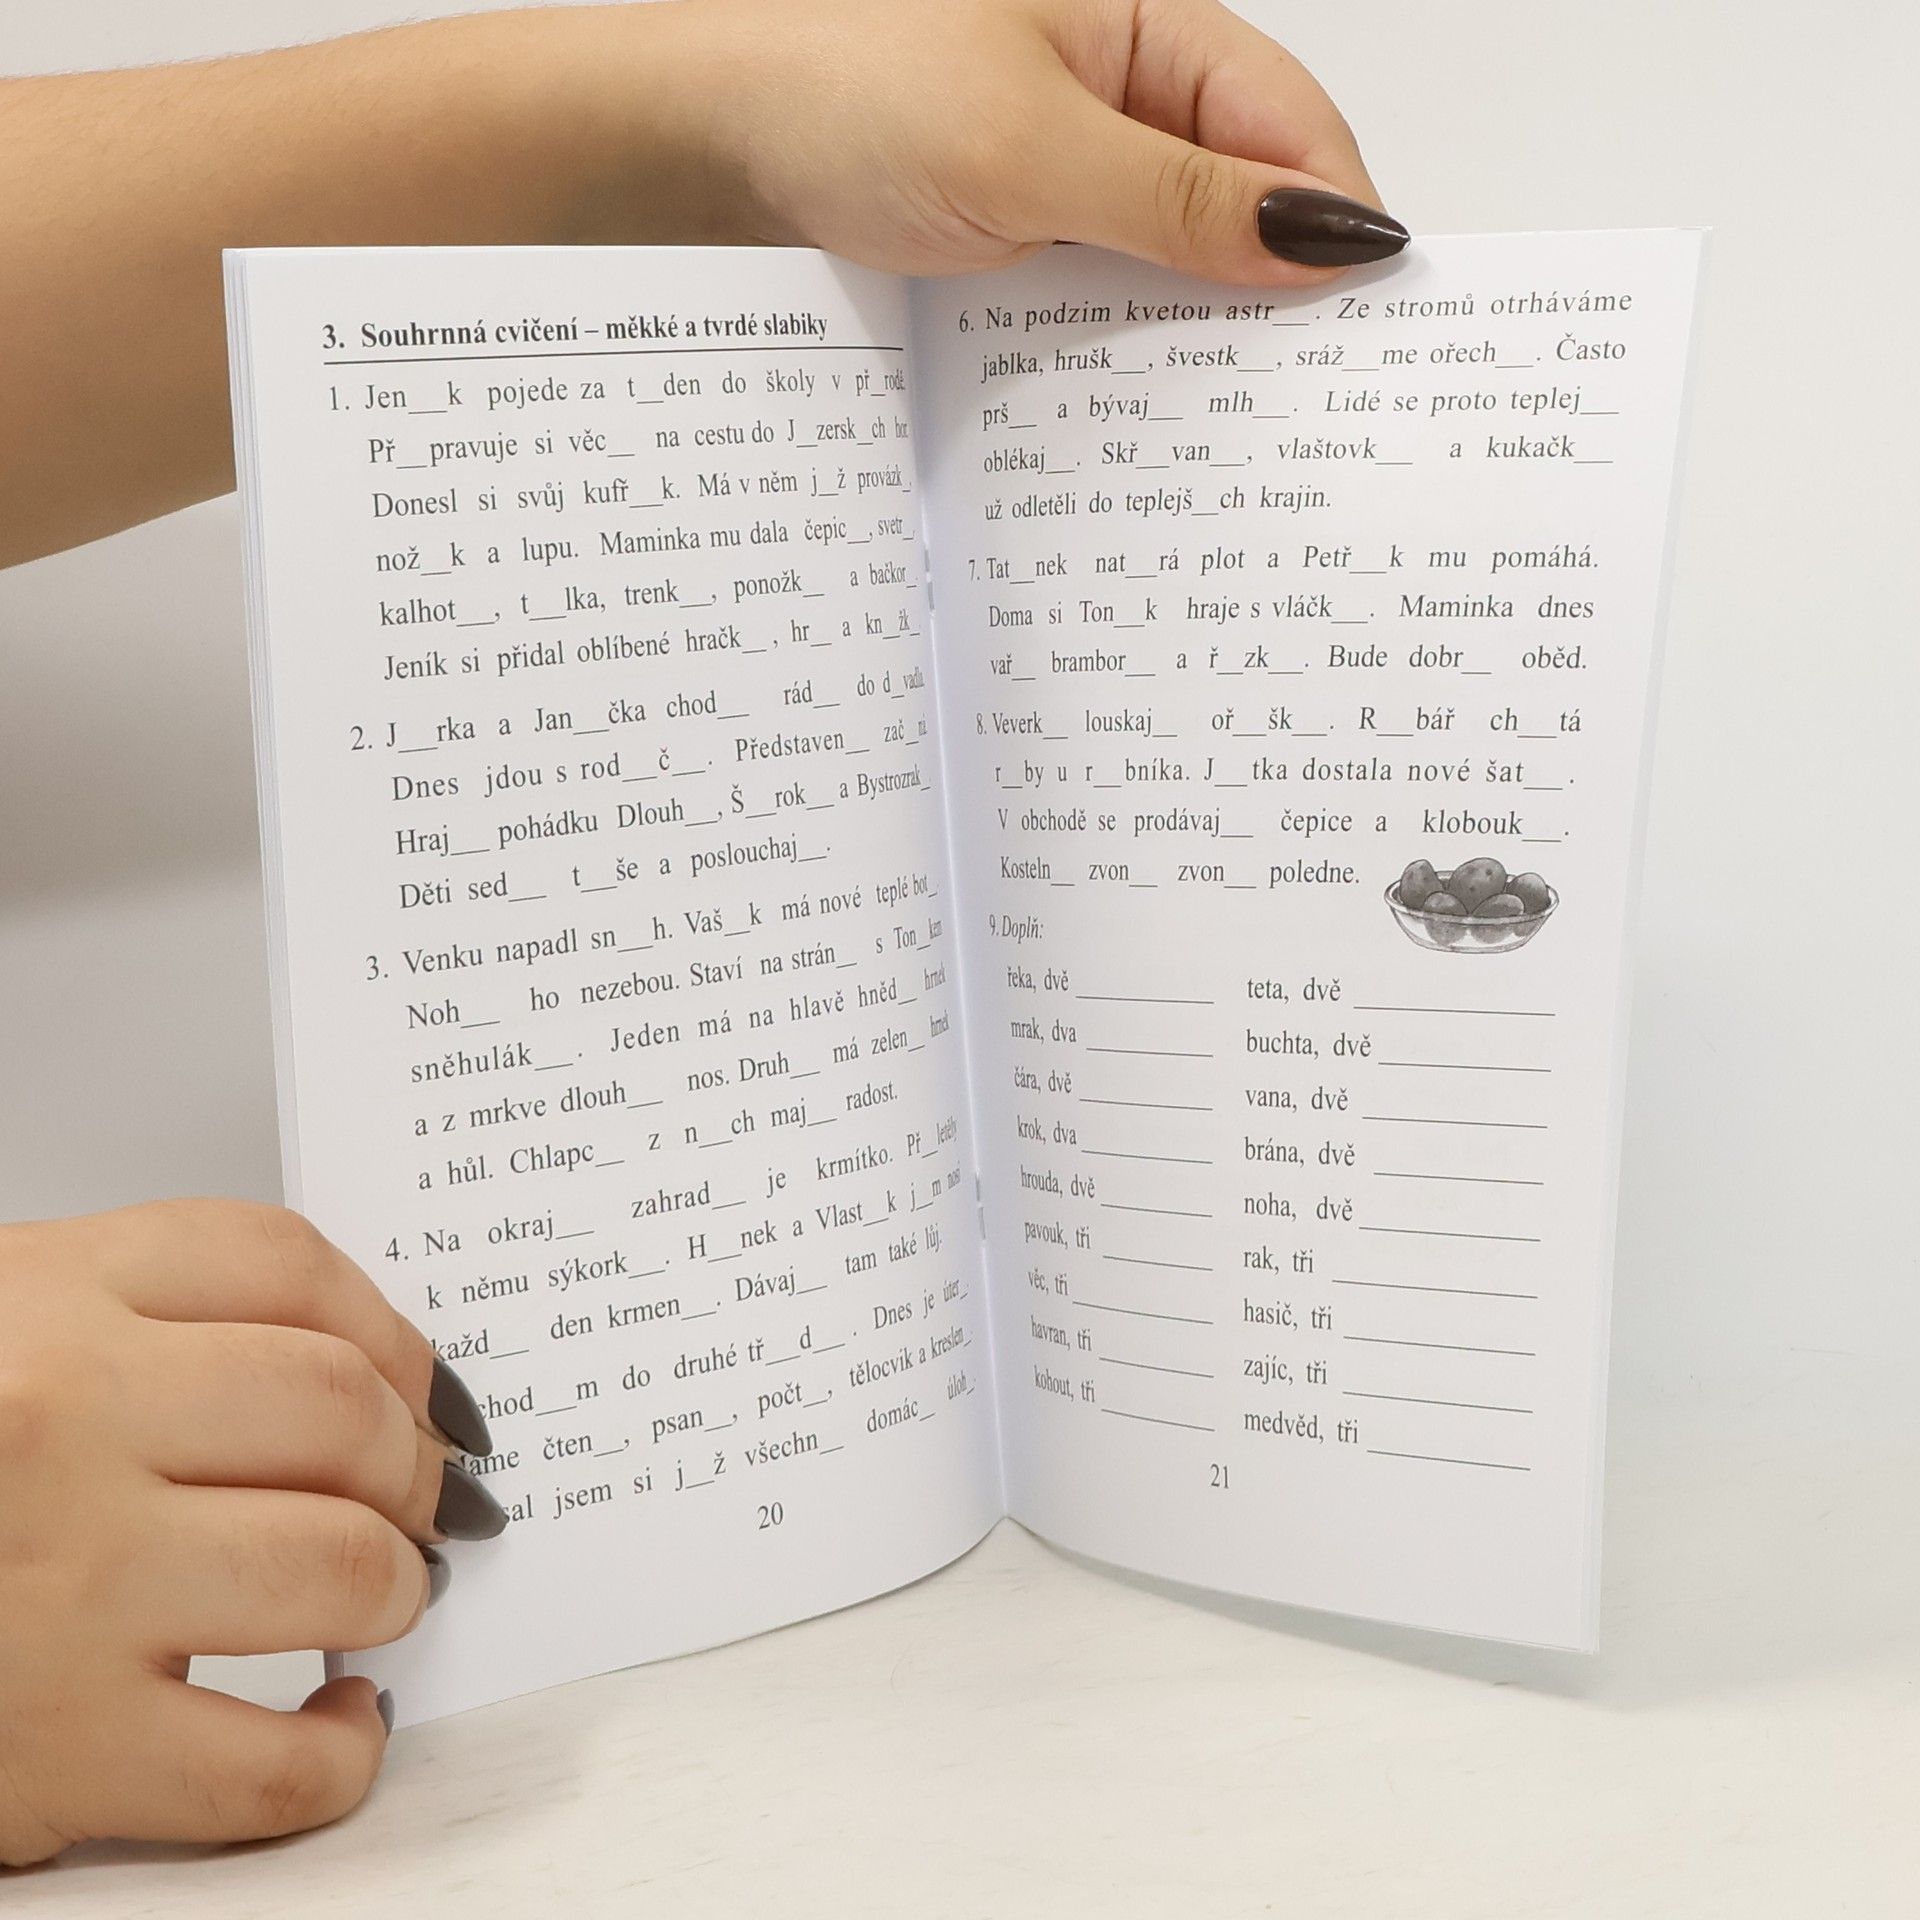 3. Souhrnná cvičení – měkké a tvrdé slabiky
1. Jen__k pojede za t__den do školy v př_rodě.
Př__pravuje si věc__ na cestu do J__zersk__ch hor.
Donesl si svůj kufř__k. Má v něm j__ž provázk_,
nož__k a lupu. Maminka mu dala čepic__, svetr_,
kalhot__, t__lka, trenk__, ponožk__ a bačkor_.
Jeník si přidal oblíbené hračk__, hr__ a kn__žk_.
2. J__rka a Jan__čka chod__ rád__ do d_vadla.
Dnes jdou s rod__č__. Představen__ zač_ná.
Hraj__ pohádku Dlouh__, Š__rok__ a Bystrozrak_.
Děti sed__ t__še a poslouchaj__.
3. Venku napadl sn__h. Vaš__k má nové teplé bot_.
Noh__ ho nezebou. Staví na strán__ s Ton__kem
sněhulák__. Jeden má na hlavě hněd__ hrnek
a z mrkve dlouh__ nos. Druh__ má zelen__ hrnek
a hůl. Chlapc__ z n__ch maj__ radost.
4. Na okraj__ zahrad__ je krmítko. Př__letěly
k němu sýkork__. H__nek a Vlast__k j__m nosí
každ__ den krmen__. Dávaj__ tam také lůj.
chod__m do druhé tř__d__. Dnes je úter_.
čten__, psan__, počt__, tělocvik a kreslen_.
jsem si j__ž všechn__ domác__ úloh_.
20
6. Na podzim kvetou astr__. Ze stromů otrháváme
jablka, hrušk__, švestk__, sráž__me ořech__. Často
prš__ a bývaj__ mlh__. Lidé se proto teplej__
oblékaj__. Skř__van__, vlaštovk__ a kukačk__
už odletěli do teplejš__ch krajin.
7. Tat__nek nat__rá plot a Petř__k mu pomáhá.
Doma si Ton__k hraje s vláčk__. Maminka dnes
vař__ brambor__ a ř__zk__. Bude dobr__ oběd.
8. Veverk__ louskaj__ oř__šk__. R__bář ch__tá
r__by u r__bníka. J__tka dostala nové šat__.
V obchodě se prodávaj__ čepice a klobouk__.
Kosteln__ zvon__ zvon__ poledne.
9. Doplň:
řeka, dvě __________ teta, dvě __________
mrak, dva __________ buchta, dvě __________
čára, dvě __________ vana, dvě __________
krok, dva __________ brána, dvě __________
hrouda, dvě __________ noha, dvě __________
pavouk, tři __________ rak, tři __________
věc, tři __________ hasič, tři __________
havran, tři __________ zajíc, tři __________
kohout, tři __________ medvěd, tři __________
21